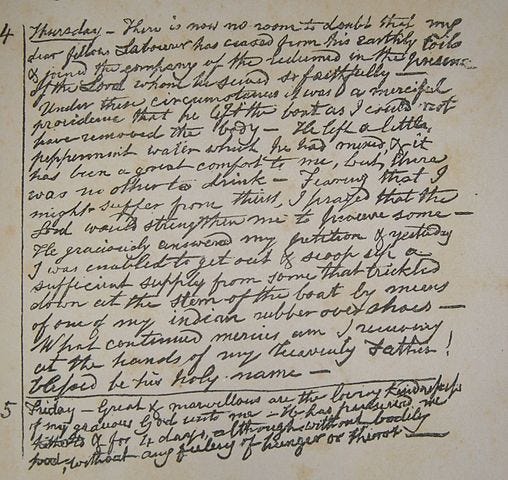 4 Thursday - There is now no room to doubt that my
dear fellow Labourer has ceased from his earthly toils
& joined the company of the redeemed in the presence
of the Lord whom he served so faithfully -
Under these circumstances it was a merciful
providence that he left the boat as I could not
have removed the body - He left a little
peppermint water which he had mixed, & it
has been a great comfort to me, but there
was no other to drink - Fearing that I
might suffer from thirst, I prayed that the
Lord would strengthen me to procure some -
He graciously answered my petition & yesterday
I was enabled to get out & scoop up a
sufficient supply from some that trickled
down at the stern of the boat by means
of one of my indian rubber over shoes -
What continued mercies am I receiving
at the hands of my heavenly Father!
blessed be his holy name -
5 Friday - Great & marvellous are the loving kindnesses
of my gracious God unto me - He has preserved me
hitherto & for 4 days, although without bodily
food, without any feeling of hunger or thirst -